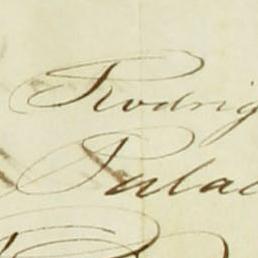 Rodrig
Pulac